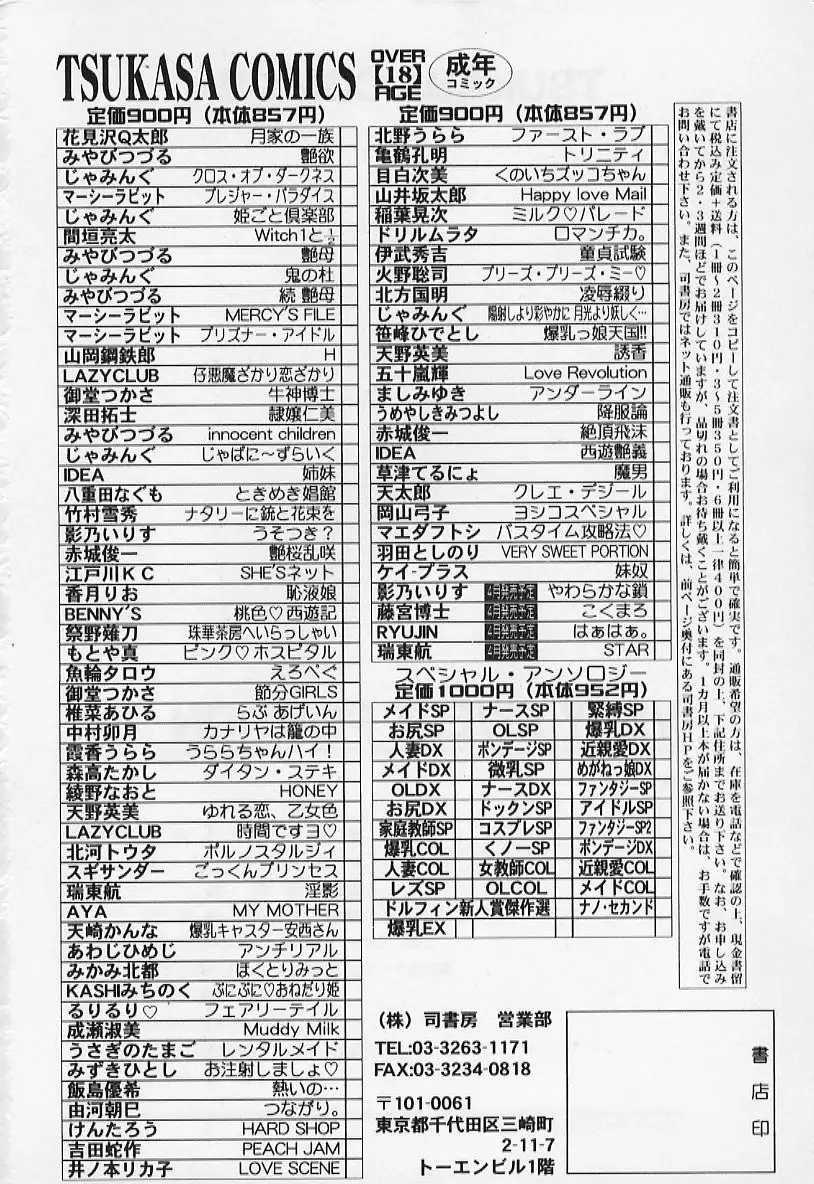 TSUKASA COMICS
OVER
【18】
AGE
成年
コミック
定価900円（本体857円）
花見沢Q太郎 月家の一族
みやびつづる 艶欲
じゃみんぐ クロス・オブ・ダークネス
マーシーラビット プレジャー・パラダイス
じゃみんぐ 姫ごと倶楽部
間垣亮太 Witch1と½
みやびつづる 艶母
じゃみんぐ 鬼の杜
みやびつづる 続 艶母
マーシーラビット MERCY'S FILE
マーシーラビット プリズナー・アイドル
山岡鋼鉄郎 H
LAZYCLUB 仔悪魔ざかり恋ざかり
御堂つかさ 牛神博士
深田拓士 隷嬢仁美
みやびつづる innocent children
じゃみんぐ じゃばに～ずらいく
IDEA 姉妹
八重田なぐも ときめき娼館
竹村雪秀 ナタリーに銃と花束を
影乃いりす うそつき？
赤城俊一 艶桜乱咲
江戸川KC SHE'Sネット
香月りお 恥液娘
BENNY'S 桃色♡西遊記
祭野薙刀 珠華茶房へいらっしゃい
もとや真 ピンク♡ホスピタル
魚輪タロウ えろぺぐ
御堂つかさ 節分GIRLS
椎菜あひる らぶ あげいん
中村卯月 カナリヤは籠の中
霞香うらら うららちゃんハイ！
森高たかし ダイタン・ステキ
綾野なおと HONEY
天野英美 ゆれる恋、乙女色
LAZYCLUB 時間ですヨ♡
北河トウタ ポルノスタルジィ
スギサンダー ごっくんプリンセス
瑞東航 淫影
AYA MY MOTHER
天崎かんな 爆乳キャスター安西さん
あわじひめじ アンチリアル
みかみ北都 ほくとりみっと
KASHIみちのく ぷにぷに♡おねだり姫
るりるり♡ フェアリーテイル
成瀬淑美 Muddy Milk
うさぎのたまご レンタルメイド
みずきひとし お注射しましょ♡
飯島優希 熱いの…
由河朝巳 つながり。
けんたろう HARD SHOP
吉田蛇作 PEACH JAM
井ノ本リカ子 LOVE SCENE
定価900円（本体857円）
北野うらら ファースト・ラブ
亀鶴孔明 トリニティ
目白次美 くのいちズッコちゃん
山井坂太郎 Happy love Mail
稲葉晃次 ミルク♡パレード
ドリルムラタ ロマンチカ。
伊武秀吉 童貞試験
火野聡司 プリーズ・プリーズ・ミー♡
北方国明 凌辱綴り
じゃみんぐ 陽射しより彩やかに 月光より妖しく…
笹峰ひでとし 爆乳っ娘天国!!
天野英美 誘香
五十嵐輝 Love Revolution
ましみゆき アンダーライン
うめやしきみつよし 降服論
赤城俊一 絶頂飛沫
IDEA 西遊艶義
草津てるにょ 魔男
天太郎 クレエ・デジール
岡山弓子 ヨシコスペシャル
マエダフトシ バスタイム攻略法♡
羽田としのり VERY SWEET PORTION
ケイ-プラス 妹奴
影乃いりす 4月発売予定 やわらかな鎖
藤宮博士 4月発売予定 こくまろ
RYUJIN 4月発売予定 はぁはぁ。
瑞東航 4月発売予定 STAR
スペシャル・アンソロジー
定価1000円（本体952円）
メイドSP ナースSP 緊縛SP
お尻SP OLSP 爆乳DX
人妻DX ボンデージSP 近親愛DX
メイドDX 微乳SP めがねっ娘DX
OLDX ナースDX ファンタジーSP
お尻DX ドックンSP アイドルSP
家庭教師SP コスプレSP ファンタジーSP2
爆乳COL くノ一SP ボンデージDX
人妻COL 女教師COL 近親愛COL
レズSP OLCOL メイドCOL
ドルフィン新人賞傑作選 ナノ・セカンド
爆乳EX
書店に注文される方は、このページをコピーして注文書としてご利用になると簡単で確実です。通販希望の方は、在庫を電話などで確認の上、現金書留
にて税込み定価＋送料（1冊～2冊310円・3～5冊350円・6冊以上一律400円）を同封の上、下記住所までお送り下さい。なお、お申し込み
を戴いてから2・3週間ほどでお届けしていますが、品切れの場合お待ち戴くことがございます。1カ月以上本が届かない場合は、お手数ですが電話で
お問い合わせ下さい。また、司書房ではネット通販も行っております。詳しくは、前ページ奥付にある司書房HPをご参照下さい。
（株）司書房 営業部
TEL:03-3263-1171
FAX:03-3234-0818
〒101-0061
東京都千代田区三崎町
2-11-7
トーエンビル1階
書店印